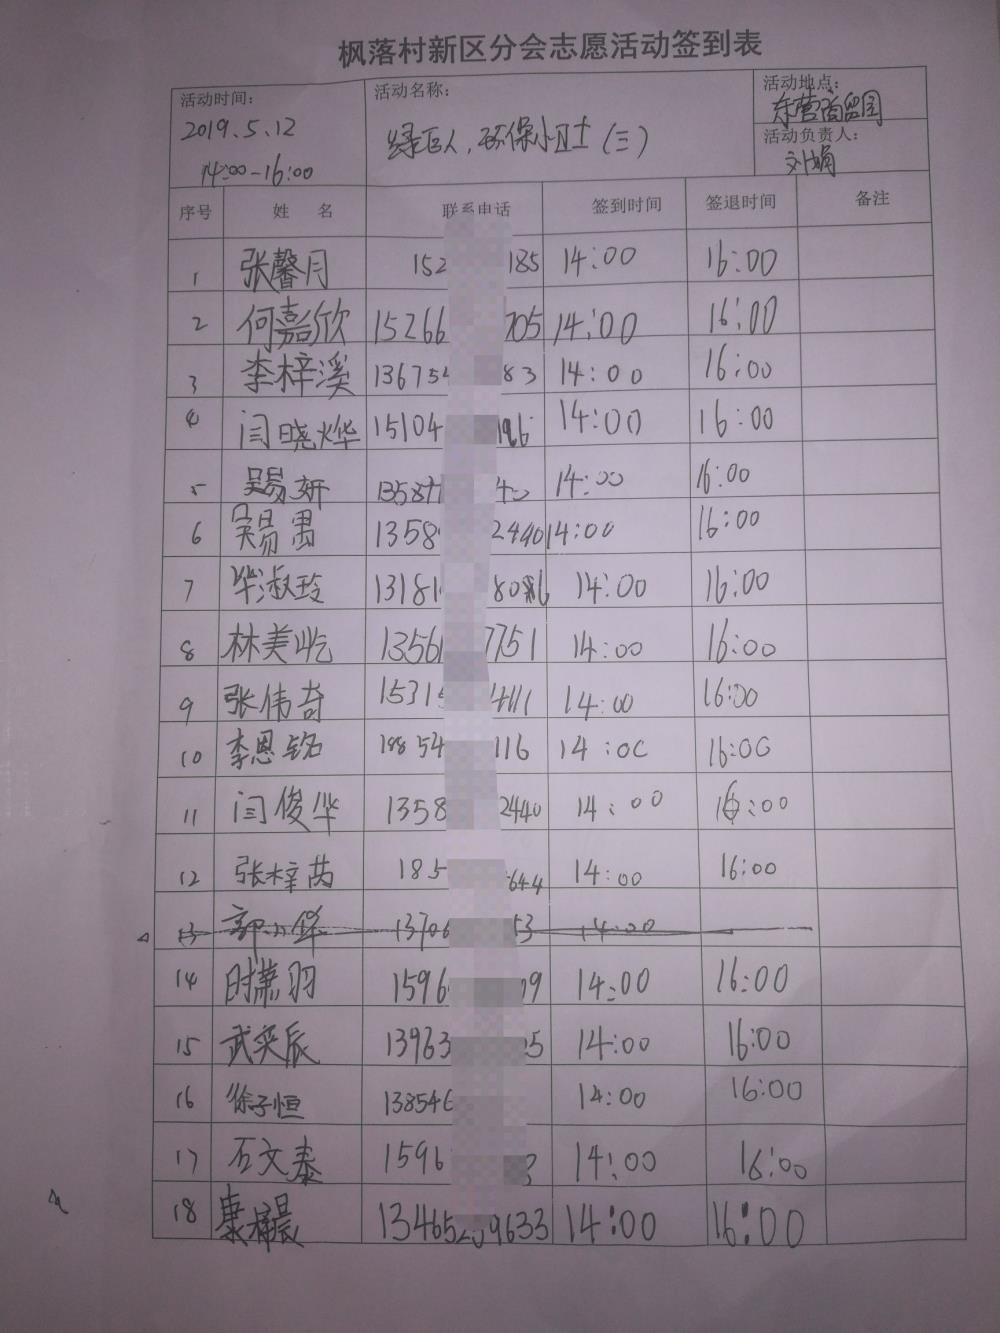 枫落村新区分会志愿活动签到表
活动时间： 活动名称： 活动地点：
2019.5.12 绿巨人，环保小卫士（三） 东营商贸园
14:00-16:00 活动负责人：
刘娟
序号 姓 名 联系电话 签到时间 签退时间 备注
1 张馨月 152 185 14:00 16:00
2 何嘉欣 15266 705 14:00 16:00
3 李梓溪 136754 83 14:00 16:00
4 闫晓烨 15104 196 14:00 16:00
5 吴易妍 1358 40 14:00 16:00
6 吴易禺 1358 2440 14:00 16:00
7 毕淑玲 13181 80 6 14:00 16:00
8 林美屹 13561 7751 14:00 16:00
9 张伟奇 1531 4111 14:00 16:00
10 李恩铭 18854 116 14:00 16:00
11 闫俊华 1358 2440 14:00 16:00
12 张梓芮 185 644 14:00 16:00
13 郭小华 13706 53 14:00
14 时萧羽 1596 09 14:00 16:00
15 武奕辰 13963 5 14:00 16:00
16 徐子恒 138546 14:00 16:00
17 石文泰 1596 3 14:00 16:00
18 康梓晨 13465 9633 14:00 16:00